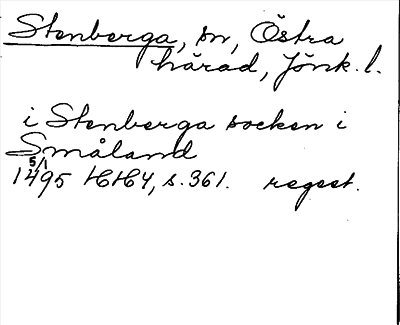 Stenberga, sn, Östra
härad, Jönk. l.
i Stenberga socken i
Småland
5/1
1495 HH4, s. 361. regest.